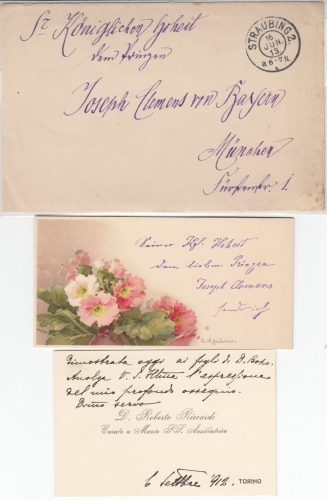 Sr. Königlichen Hoheit
dem Prinzen
Joseph Clemens von Bayern
München
Fürstenstr. 1.
STRAUBING 2
16
JUN.
13
8.6-7N.
Seiner Kgl. Hoheit
dem lieben Prinzen
Joseph Clemens
Dimostrata oggi ai figli di D. Bosco.
V. S. Ill.ma l'espressione
del mio profondo ossequio.
servo
D. Roberto Riccardi
Curato a Maria SS. Ausiliatrice
6 Settbre 912.
TORINO